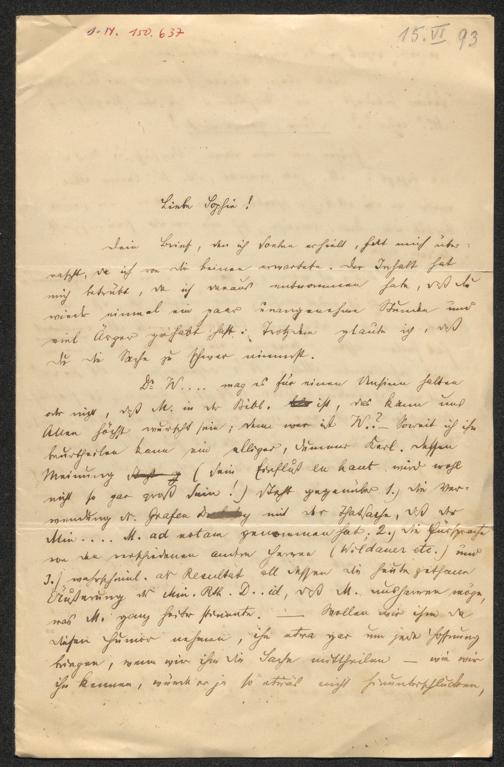 I. N. 150.637
15. VI 93
Liebe Sophie!
Dein Brief, den ich soeben erhielt, hat mich über-
rascht, da ich von dir keinen erwartete. Der Inhalt hat
mich betrübt, da ich daraus entnommen habe, daß du
wieder einmal ein paar unangenehme Stunden und
viel Ärger gehabt hast. Trotzdem glaube ich, daß
du die Sache zu schwer nimmst.
Dr. W.... mag es für einen Unsinn halten
oder nicht, daß M. in der Bibl. ist, das kann uns
Allen höchst wurscht sein; denn wer ist W.? – Soweit ich ihn
beurtheilen kann ein dummer Kerl. Dessen
Meinung (dein Einfluß en haut wird wohl
nicht so gar groß sein!) steht gegenüber 1.) die Ver-
wendung des Grafen mit der Thatsache, daß der
Min.... M. ad notam genommen hat; 2.) die Fürsprache
von den verschiedenen andren Herren (Wildauer etc.) und
3.) wahrscheinl. als Resultat all dessen die heute gethane
Äußerung des Min. Rth. D..id, daß M. ausharren möge,
was M. ganz heiter stimmte. — Wollen wir ihm da
diesen Humor nehmen, ihn etwa gar um jede Hoffnung
bringen, wenn wir ihm die Sache mittheilen — wie wir
ihn kennen, würde er ja so etwas nicht hinunterschlucken,